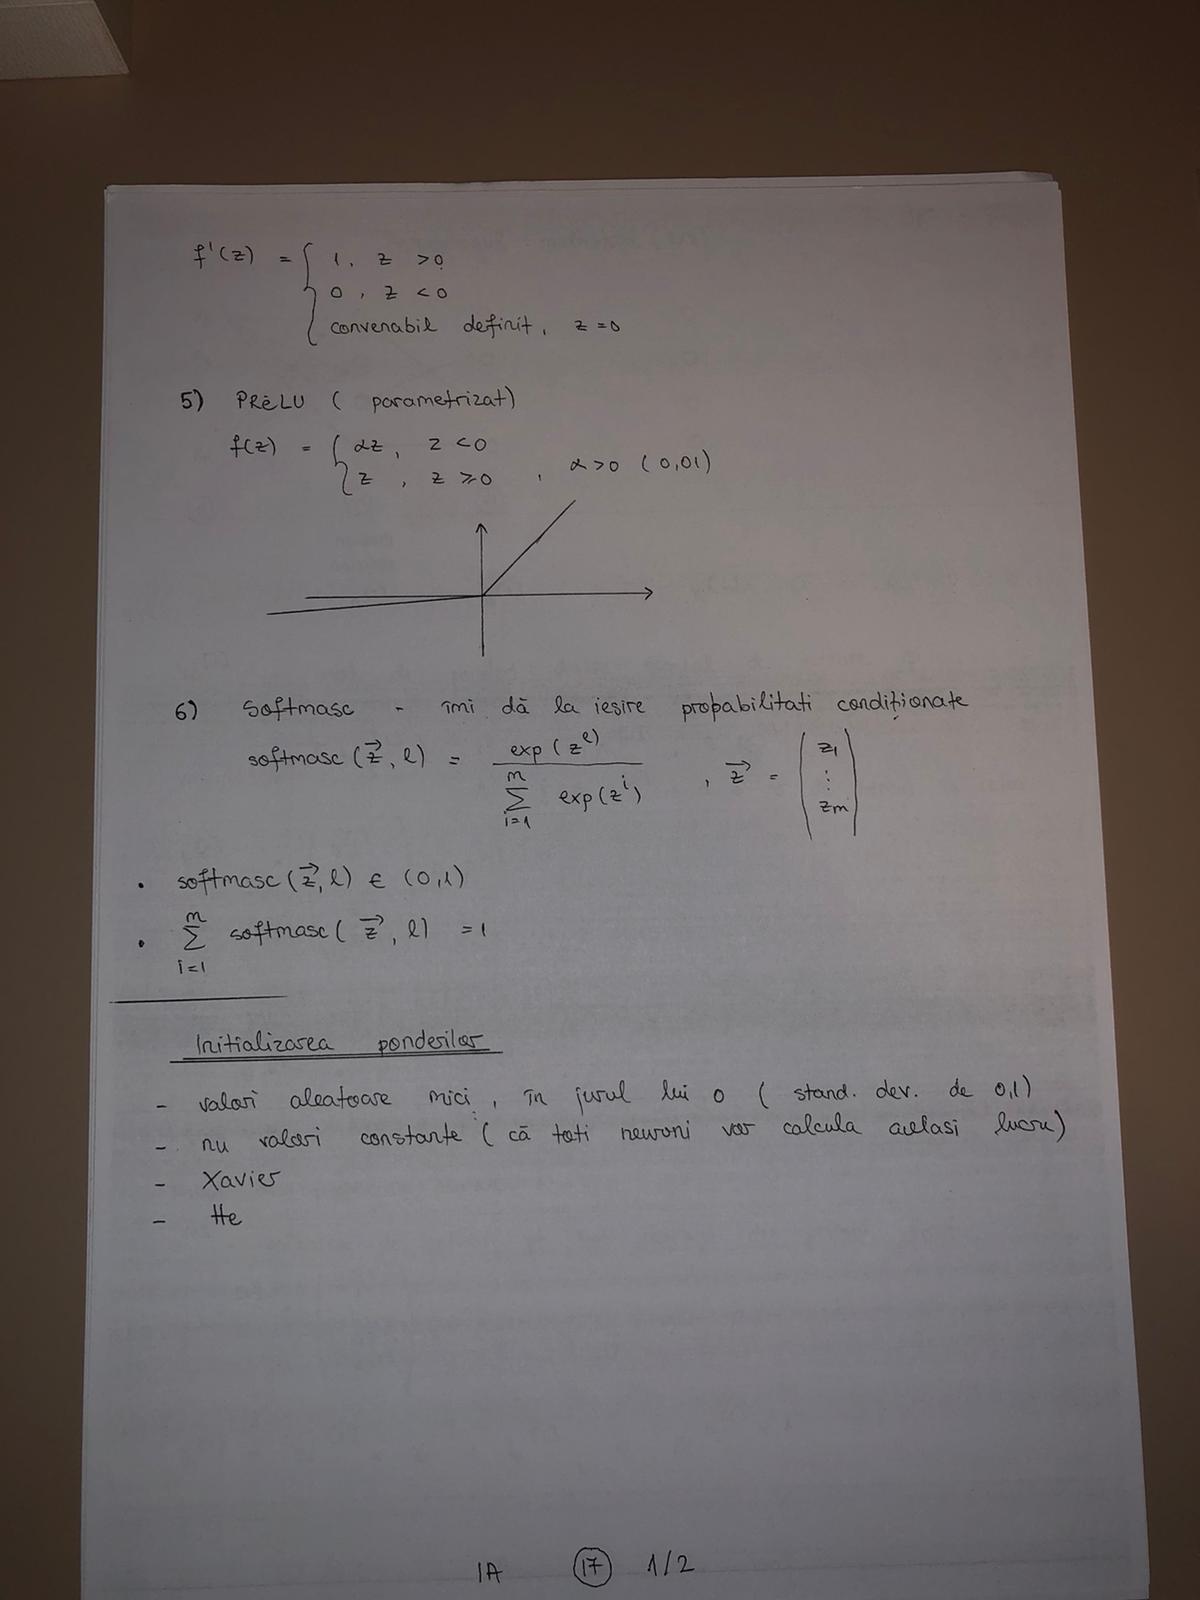 f'(z) = { 1, z > 0
0, z < 0
convenabil definit, z = 0
5) PReLU ( parametrizat)
f(z) = { αz, z < 0
z, z ≥ 0, α > 0 (0,01)
6) Softmasc - îmi dă la iesire probabilitati condiționate
softmasc (z⃗, l) = exp(z^l) / ∑_{i=1}^{m} exp(z^i), z⃗ = (z1 ⋮ zm)
• softmasc (z⃗, l) ∈ (0,1)
• ∑_{i=1}^{m} softmasc ( z⃗, l) = 1
Initializarea ponderilor
- valori aleatoare mici, în jurul lui 0 ( stand. dev. de 0,1)
- nu valori constante ( că toti neuroni vor calcula acelasi lucru)
- Xavier
- He
IA 17 1/2